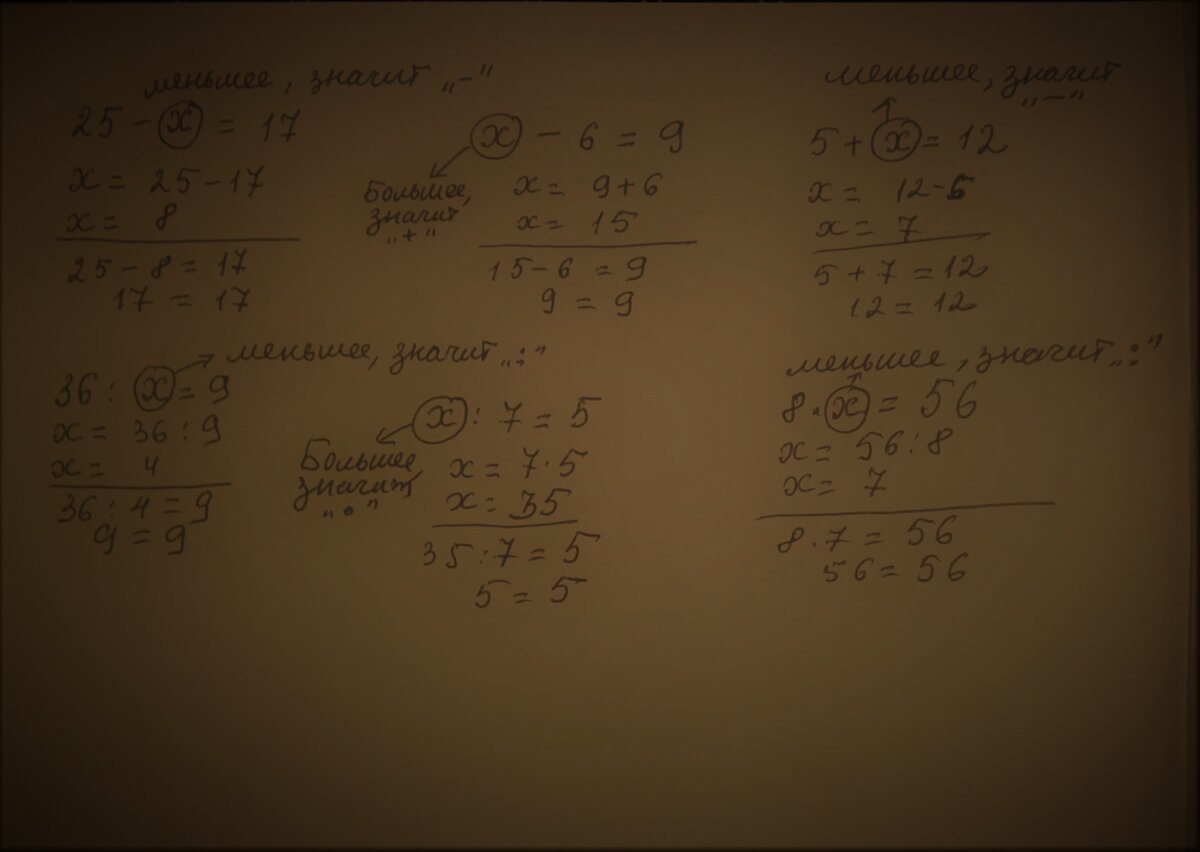 меньшее, значит „−"
25 − x = 17
x = 25−17
x = 8
25 − 8 = 17
17 = 17
x − 6 = 9
Большее,
значит
„+"
x = 9+6
x = 15
15−6 = 9
9 = 9
меньшее, значит
„−"
5 + x = 12
x = 12−5
x = 7
5 + 7 = 12
12 = 12
меньшее, значит „:"
36 : x = 9
x = 36 : 9
x = 4
36 : 4 = 9
9 = 9
x : 7 = 5
Большее,
значит
„•"
x = 7·5
x = 35
35 : 7 = 5
5 = 5
меньшее, значит „:"
8 · x = 56
x = 56 : 8
x = 7
8 · 7 = 56
56 = 56